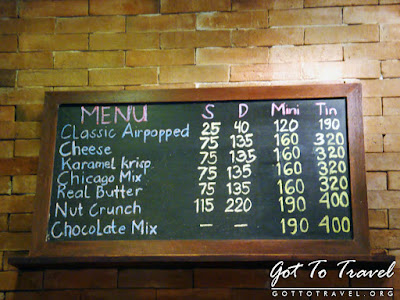 MENU S D Mini Tin
Classic Airpopped 25 40 120 190
Cheese 75 135 160 320
Karamel krisp 75 135 160 320
Chicago Mix 75 135 160 320
Real Butter 75 135 160 320
Nut Crunch 115 220 190 400
Chocolate Mix — — 190 400
Got To Travel
GOTTOTRAVEL.ORG